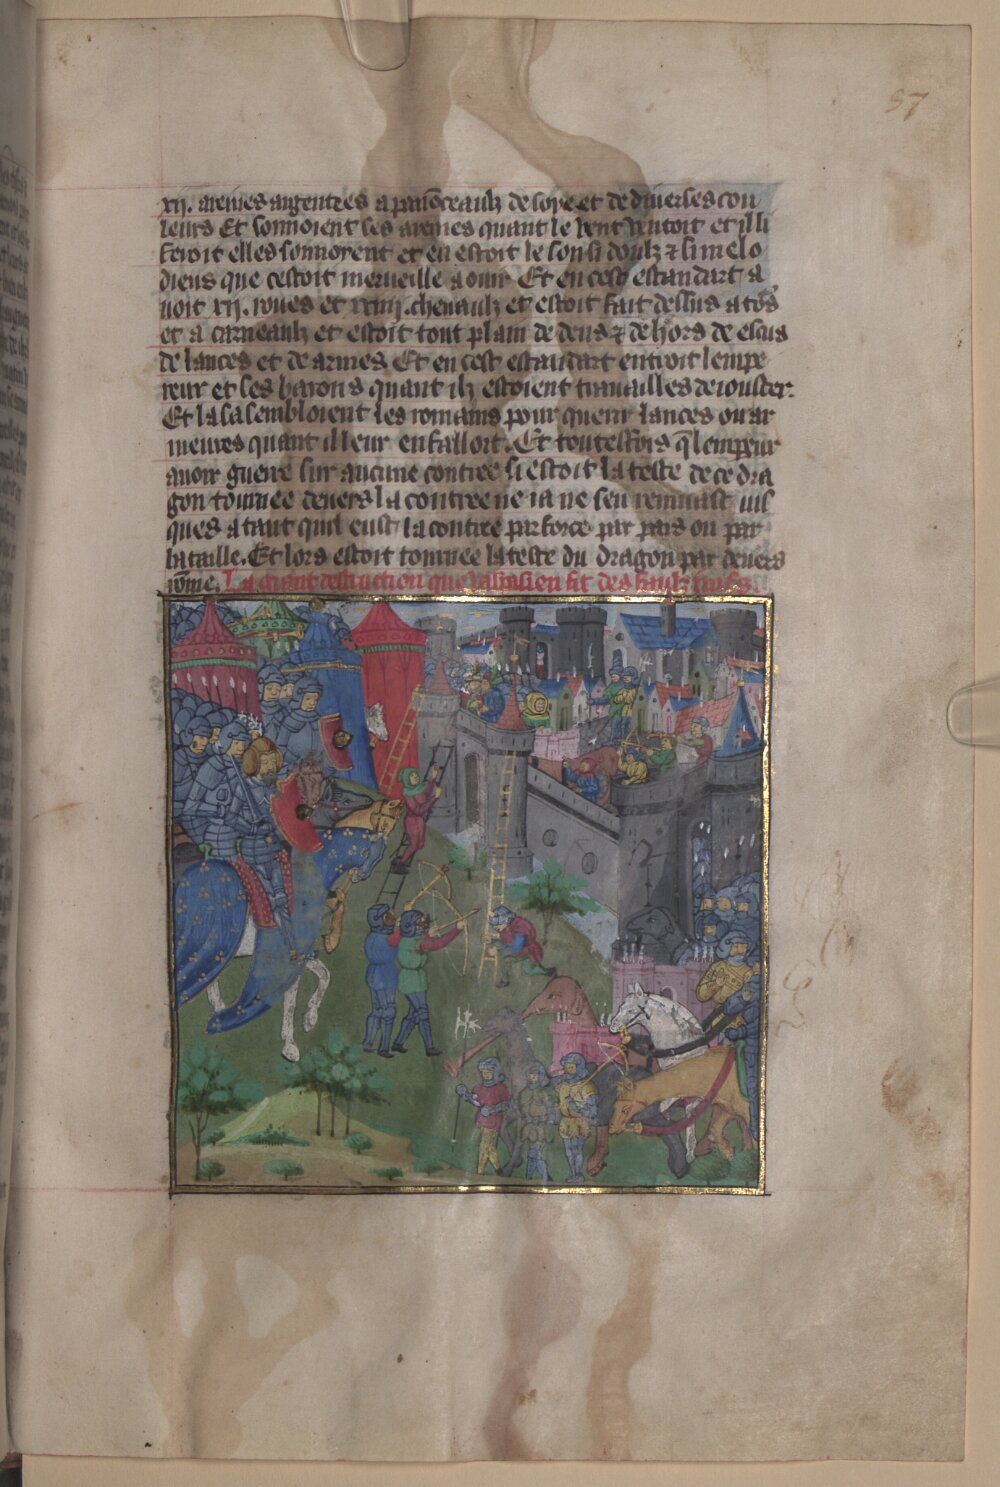 57
xij. areines argentees a panōceaulx de soye et de diuerses cou
leurs Et sonnoient ses areines quant le vent ventoit et illi
feroit elles sonnoyent et en estoit le son si doulz ⁊ si melo
dieus que cestoit merueille a ouir Et en cest estandart a
uoit xij. roues et xxiiij. cheuaulx et estoit fait dessus a tōs
et a carneaulx et estoit tout plain dedens ⁊ dehors de escus
de lances et de armes Et en cest estandart entroit lempe
reur et ses barons quant ilz estoient trauailles de iouster.
Et la sasembloient les romains pour querir lances ou ar
meures quant il leur en falloit. Et toutesfois q̄ lempeur
auoit guerre sur aucune contree si estoit la teste de ce dra
gon tournee deuers la contree ne ia ne sen remuast ius
ques a tant quil eust la contree par force par pais ou par
bataille. Et lors estoit tournee la teste du dragon par deuers
rōme. La grant destruction que vaspasien fit des faulx iuifz